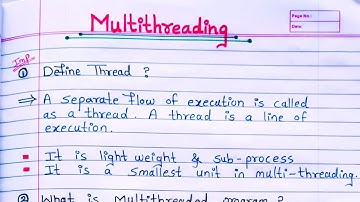 Multithreading
Page No :
Date:
Imp.
① Define Thread ?
⇒ A separate flow of execution is called
as a thread. A thread is a line of
execution.
It is light weight & sub-process
It is a smallest unit in multi-threading.
② What is Multithreaded program ?